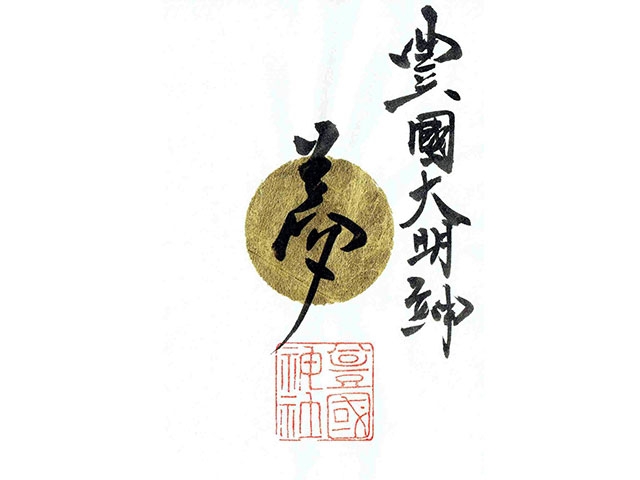 豊國大明神
夢
豊國神社